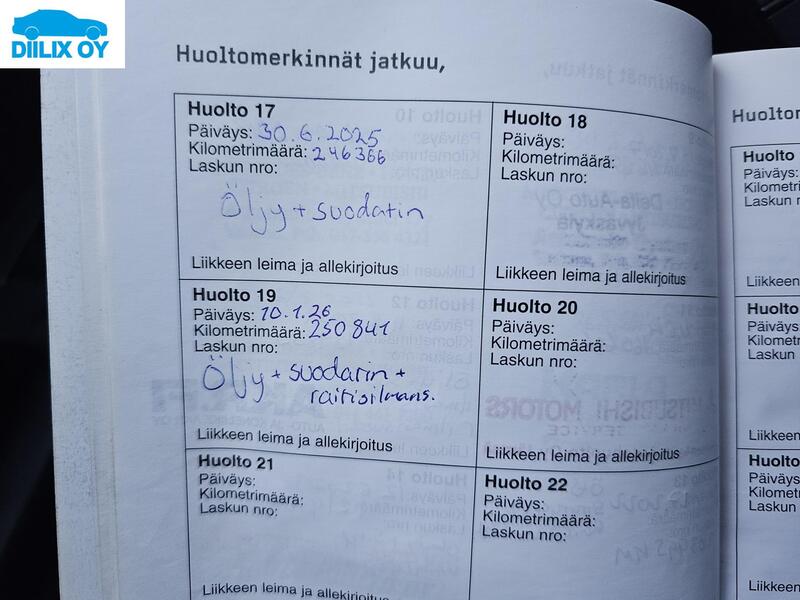 DIILIX OY
Huoltomerkinnät jatkuu,
Huolto 17
Päiväys: 30.6.2025
Kilometrimäärä: 246366
Laskun nro:
Öljy + suodatin
Liikkeen leima ja allekirjoitus
Huolto 18
Päiväys:
Kilometrimäärä:
Laskun nro:
Liikkeen leima ja allekirjoitus
Huolto 19
Päiväys: 10.1.26
Kilometrimäärä: 250841
Laskun nro:
Öljy + suodatin +
raitisilmans.
Liikkeen leima ja allekirjoitus
Huolto 20
Päiväys:
Kilometrimäärä:
Laskun nro:
Liikkeen leima ja allekirjoitus
Huolto 21
Päiväys:
Kilometrimäärä:
Laskun nro:
Liikkeen leima ja allekirjoitus
Huolto 22
Päiväys:
Kilometrimäärä:
Laskun nro:
Huolto
Päiväys:
Kilometri
Laskun n
Liikkeen
Huolto
Päiväys:
Kilometri
Laskun
Liikkeen
Huolto
Päiväys
Kilomet
Laskun